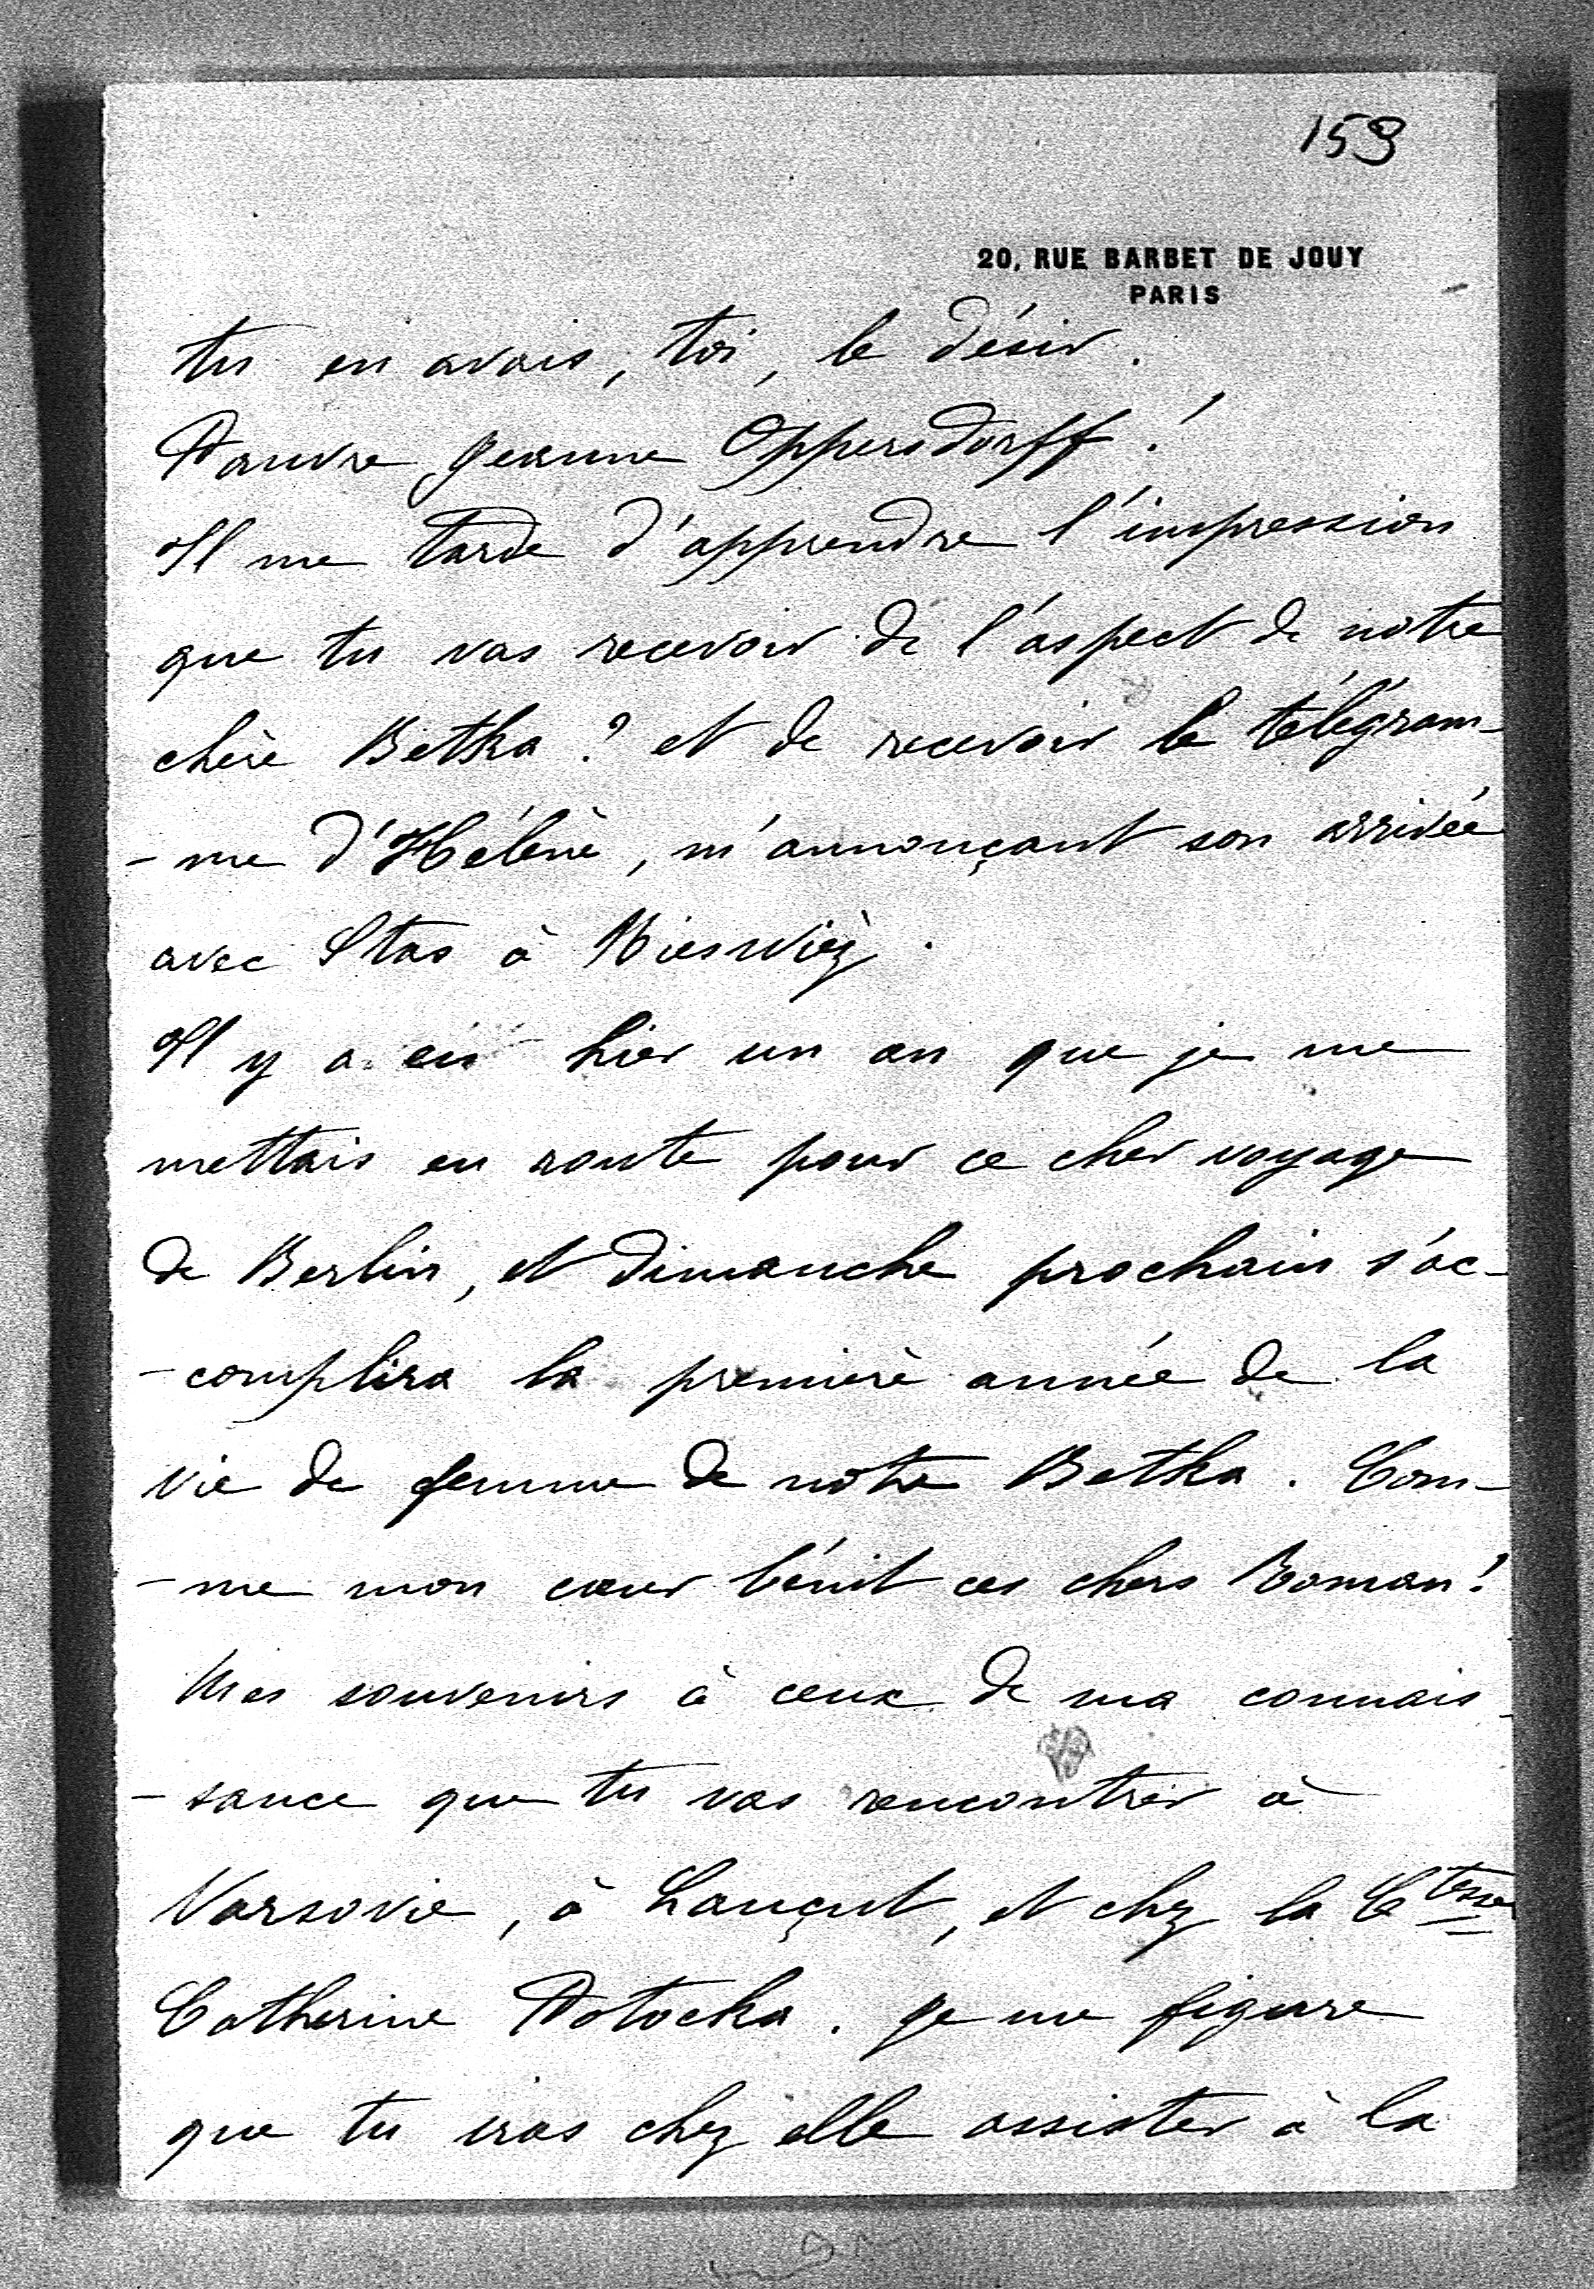 159
20, RUE BARBET DE JOUY
PARIS
tu en avais, toi, le désir.
Pauvre Jeanne Oppersdorff!
Il me tarde d'apprendre l'impression
que tu vas recevoir de l'aspect de notre
chère Betka? et de recevoir le télégram-
-me d'Hélène, m'annonçant son arrivée
avec Stas à Nieswiéz.
Il y a eu hier un an que je me
mettais en route pour ce cher voyage
de Berlin, et dimanche prochain s'ac-
-complira la première année de la
vie de femme de notre Betka. Com-
-me mon cœur bénit ces chers Roman!
Mes souvenirs à ceux de ma connais-
-sance que tu vas rencontrer à
Varsovie, à Lançut, et chez la Ctesse
Catherine Potocka. Je me figure
que tu iras chez elle assister à la